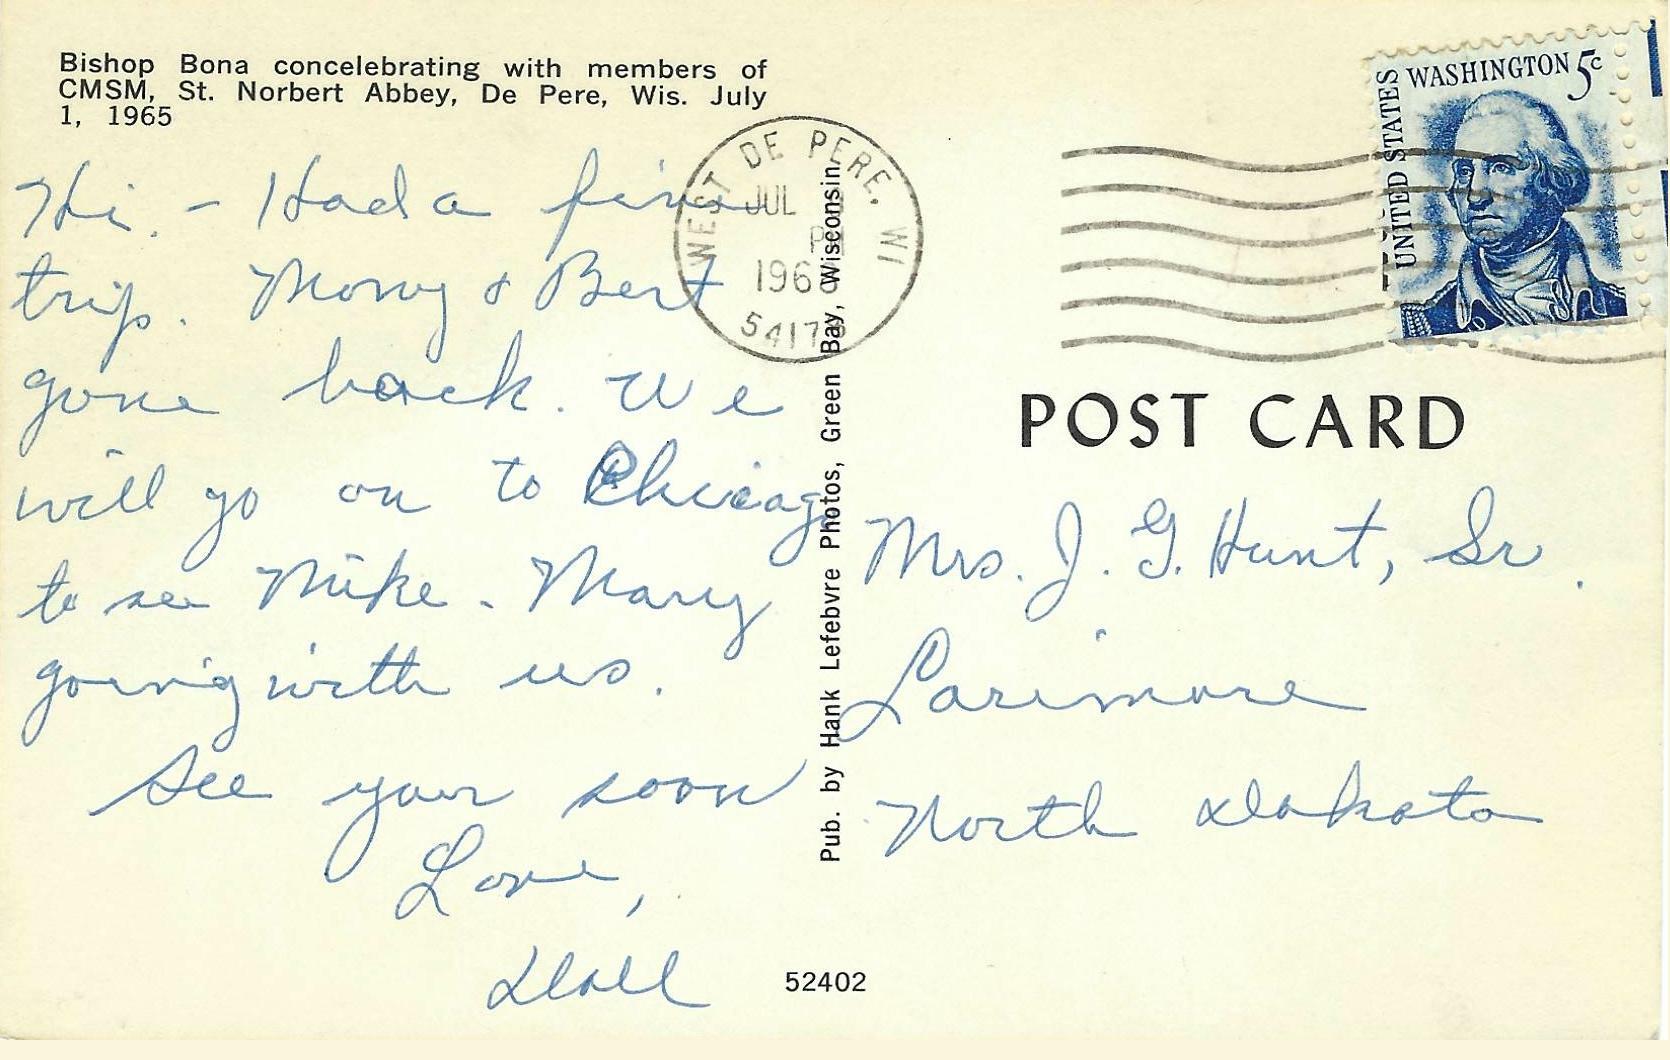 Bishop Bona concelebrating with members of
CMSM, St. Norbert Abbey, De Pere, Wis. July
1, 1965
Hi. - Had a fine
trip.
& Bert
gone back. We
will go on to Chicago
to see Mike. Mary
going with us.
See your soon
Love,
WEST DE PERE, WI
JUL
PM
196
5417
Pub. by Hank Lefebvre Photos, Green Bay, Wisconsin.
52402
UNITED STATES
WASHINGTON 5c
POST CARD
Mrs. J. G. Hunt, Sr.
Larimore
North Dakota